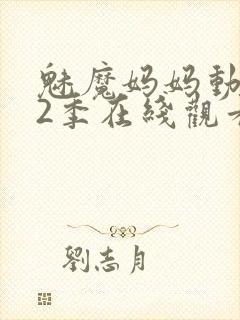 魅魔妈妈動
2季在綫觀
劉志月